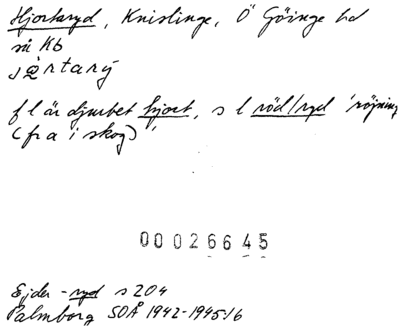 Hjortaryd, Knislinge, Ö Göinge hd
sn Kb
jòrtarý
f l är djurbet hjort, s l röd/ryd 'röjning
(fr a i skog)'
00026645
Ejder -ryd s 204
Palmborg SOÅ 1942-1945:16